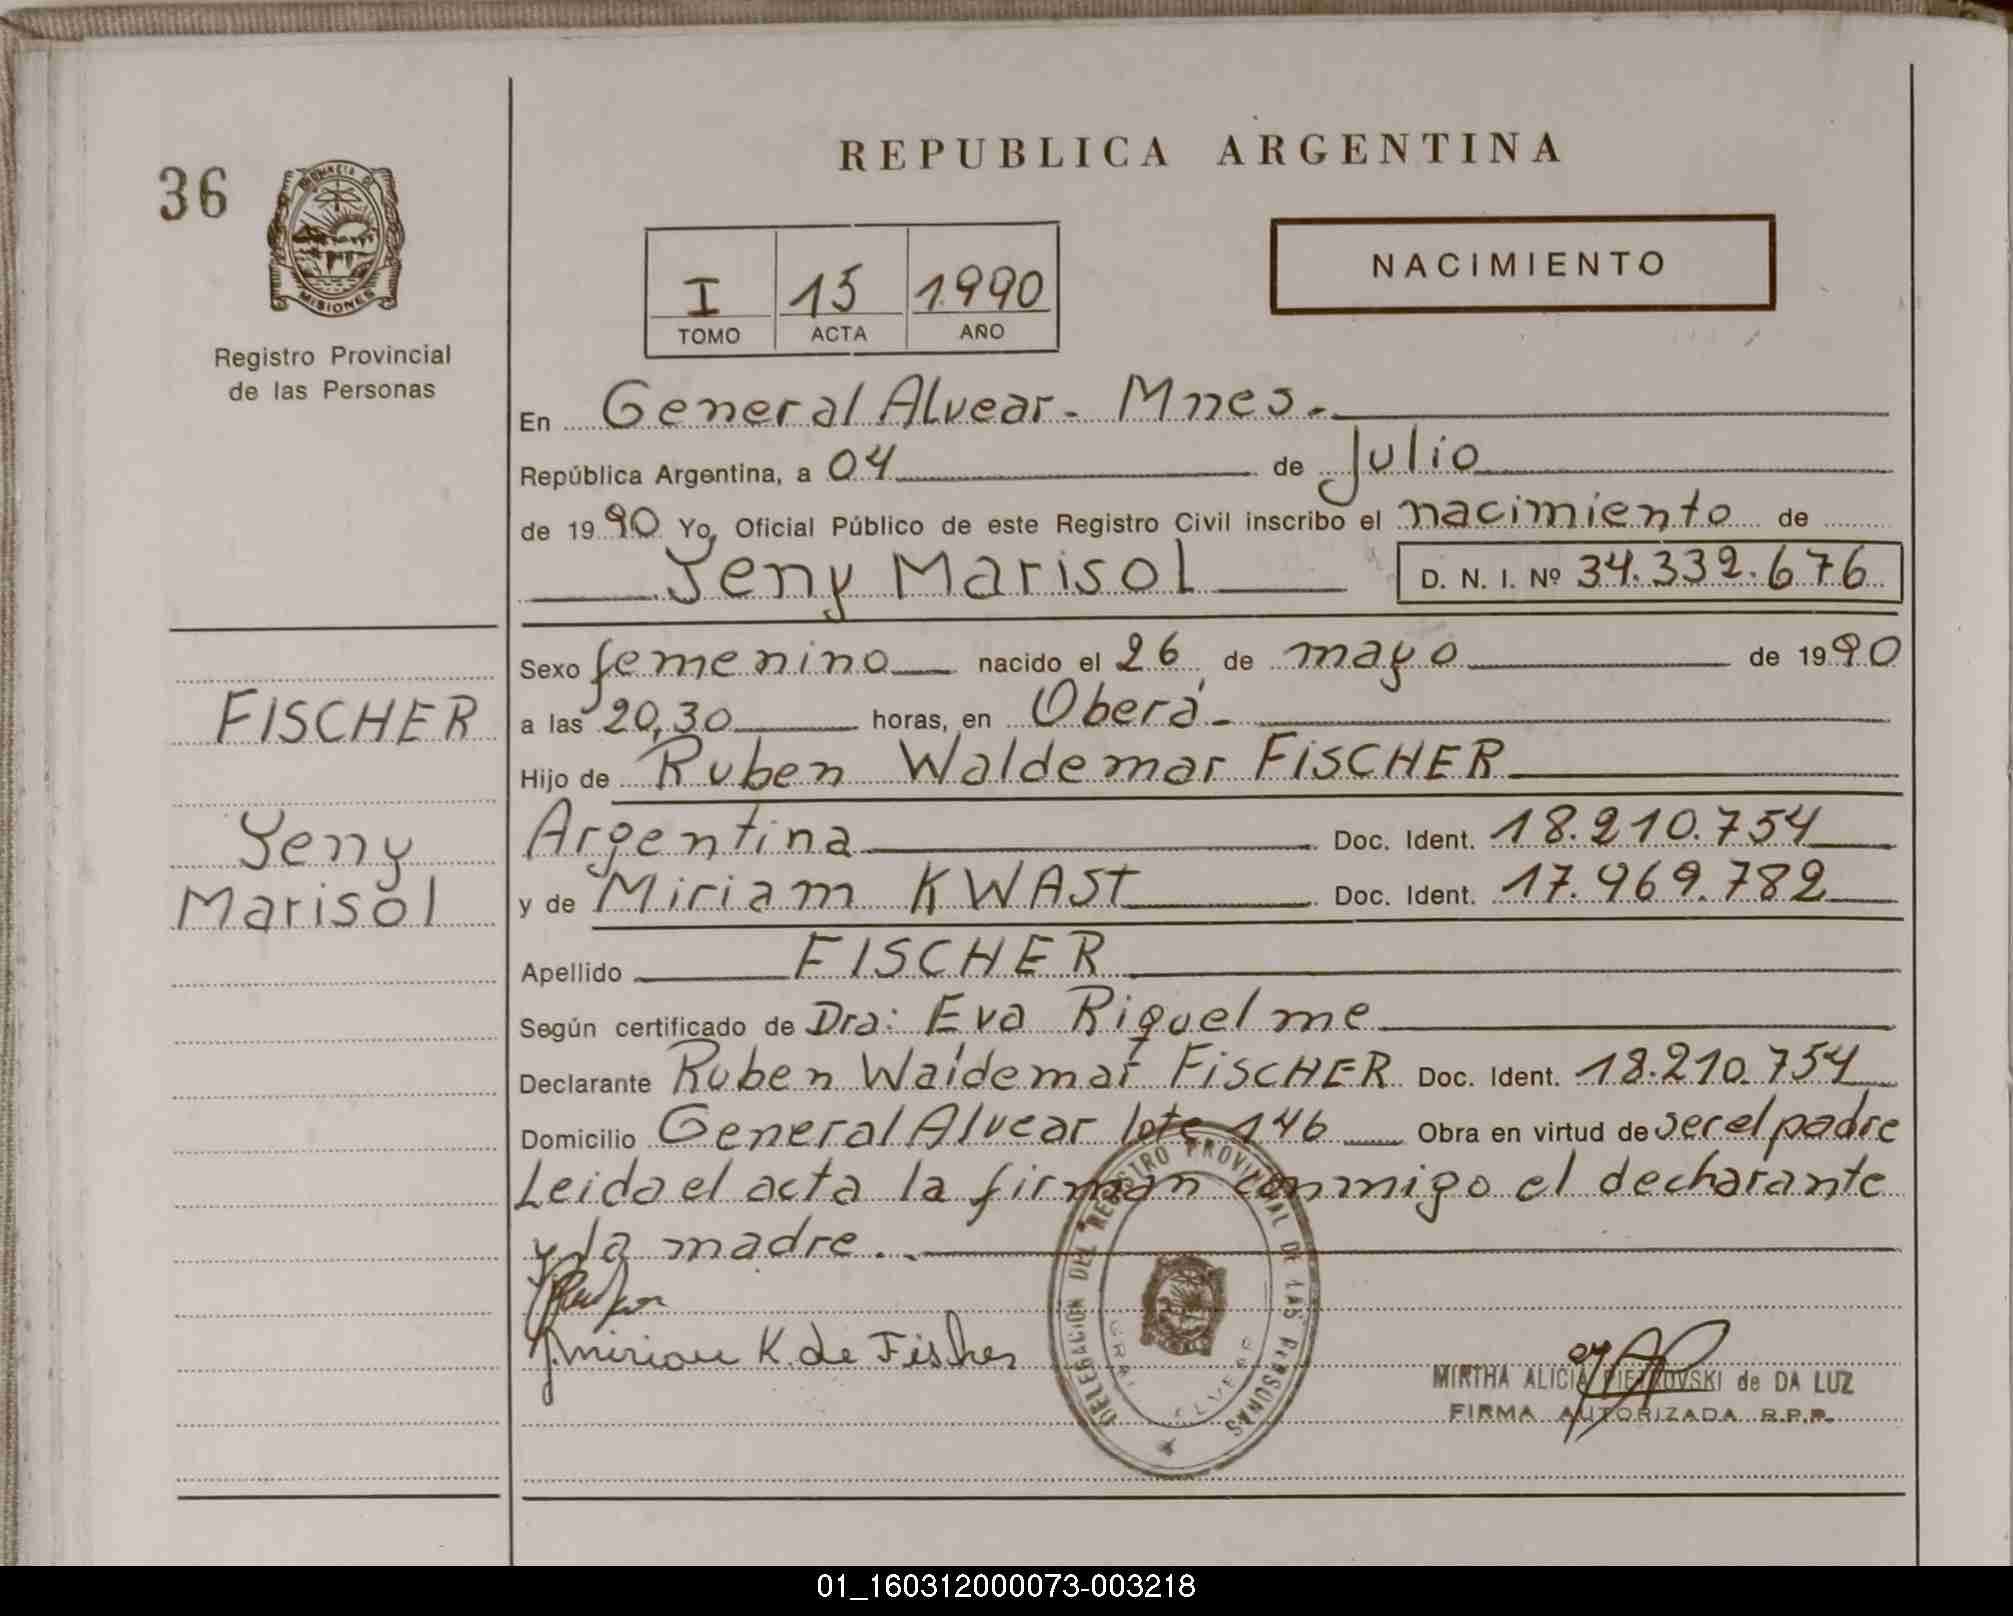 36
PROVINCIA DE
MISIONES
Registro Provincial
de las Personas
REPUBLICA ARGENTINA
I 15 1990
TOMO ACTA AÑO
NACIMIENTO
En General Alvear - Mnes.
República Argentina, a 04 de Julio
de 1990 Yo, Oficial Público de este Registro Civil inscribo el nacimiento de
Yeny Marisol D. N. I. Nº 34.332.676
Sexo femenino nacido el 26 de mayo de 1990
FISCHER
a las 20,30 horas, en Oberá -
Hijo de Ruben Waldemar FISCHER
Yeny
Marisol
Argentina Doc. Ident. 18.210.754
y de Miriam KWAST Doc. Ident. 17.969.782
Apellido FISCHER
Según certificado de Dra: Eva Riquelme
Declarante Ruben Waldemar FISCHER Doc. Ident. 18.210.754
Domicilio General Alvear lote 146 Obra en virtud de ser el padre
Leida el acta la firman conmigo el decharante
y la madre..
Miriam K. de Fischer
DELEGACIÓN DEL REGISTRO PROVINCIAL DE LAS PERSONAS
MIRTHA ALICIA PIETROVSKI de DA LUZ
FIRMA AUTORIZADA R.P.P.
01_160312000073-003218